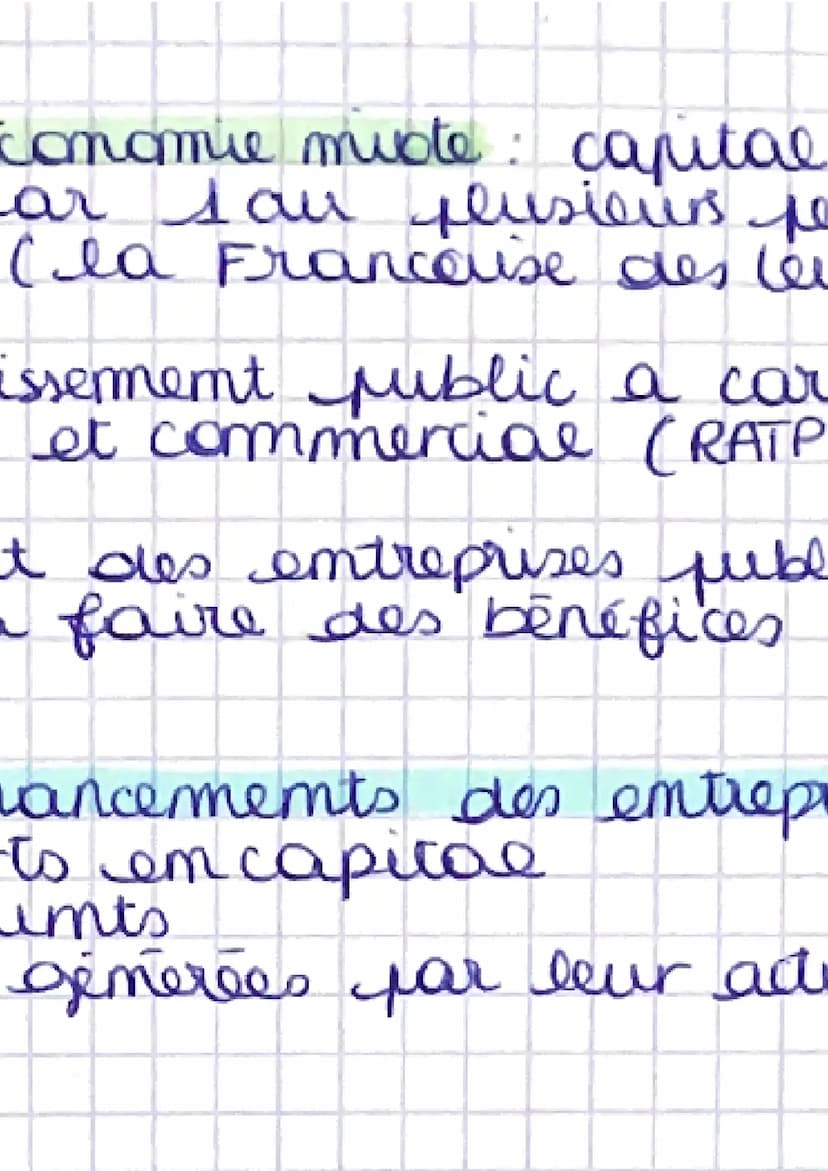 conomie mixte : capital
ar 1 ou plusieurs pe
( la Francaise des Jeu
issement public a car
et commercial ( RATP
t des entreprises publ
a faire des bénéfices
nancements des entrepr
ts en capital
unts
générées par leur acti